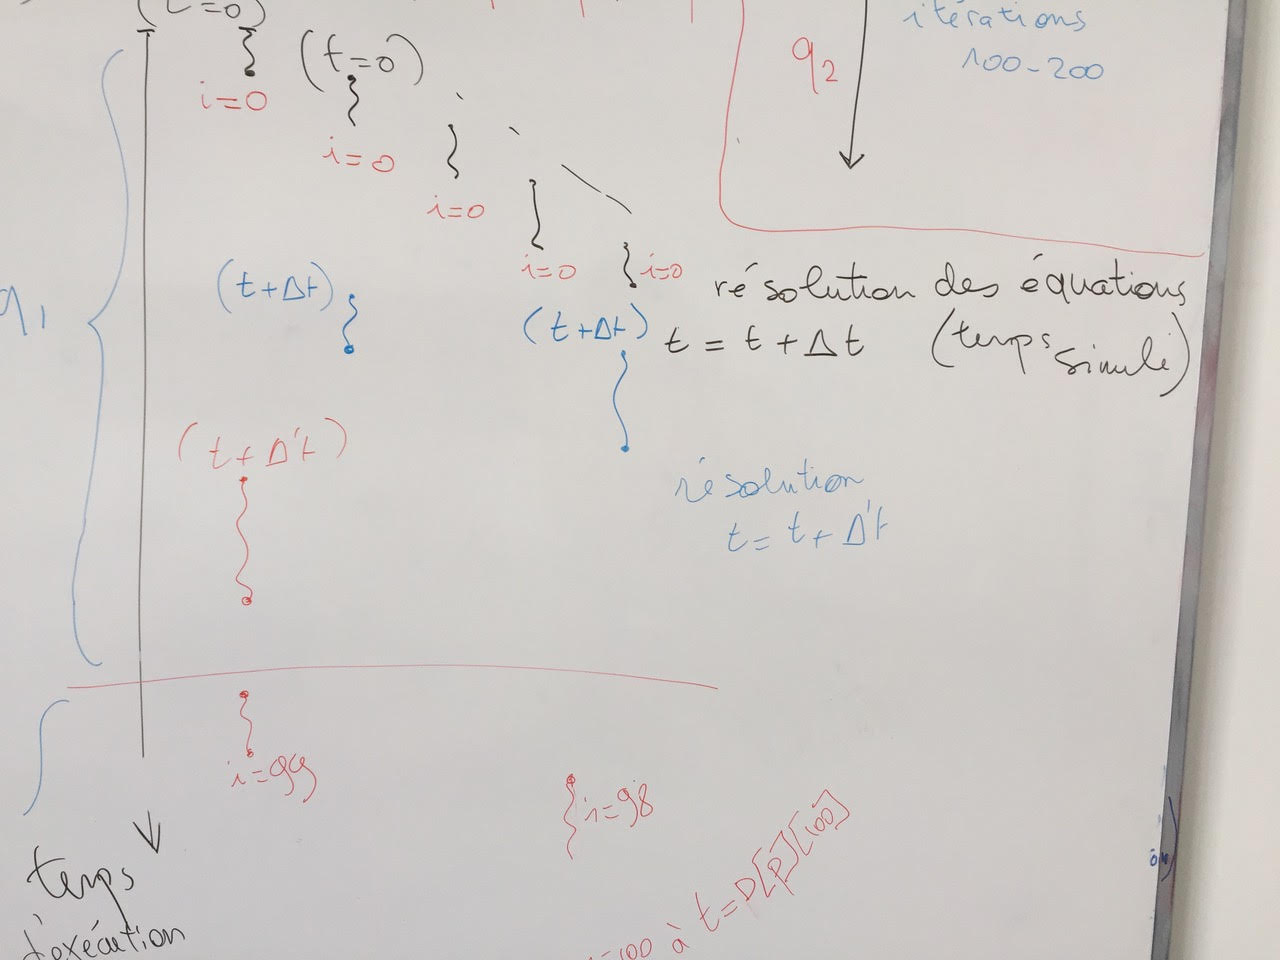 (t=0)
(t=0)
i=0
i=0
i=0
i=0
i=0
q2
itérations
100-200
q1
(t+Δt)
(t+Δt)
résolution des équations
t = t + Δt (temps simulé)
(t+Δ't)
résolution
t = t + Δ't
i=99
i=98
temps
d'exécution
=100 à t=D[p][100]